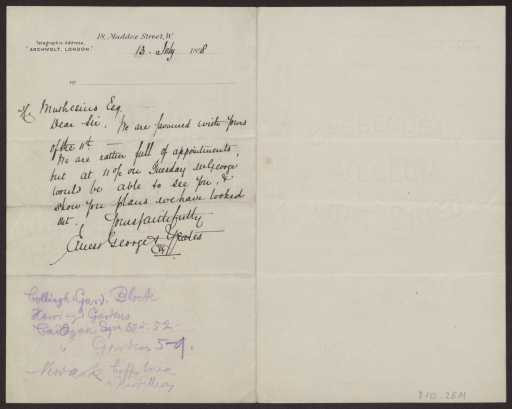 18, Maddox Street, W.
Telegraphic Address,
"ARCHWOLT, LONDON."
13. July 1888
to
H. Muthesius Esq
Dear Sir. We are favoured with yours
of the 11th
We are rather full of appointments,
but at 11 o/c on Tuesday mr George
would be able to see you, &
show you plans we have looked
out.
Yours faithfully
Ernest George & Yeates
Collingham Gard. Block
Harrington Gardens
Cadogan Sqre 50-52
" Gardens 5-9.
Newark